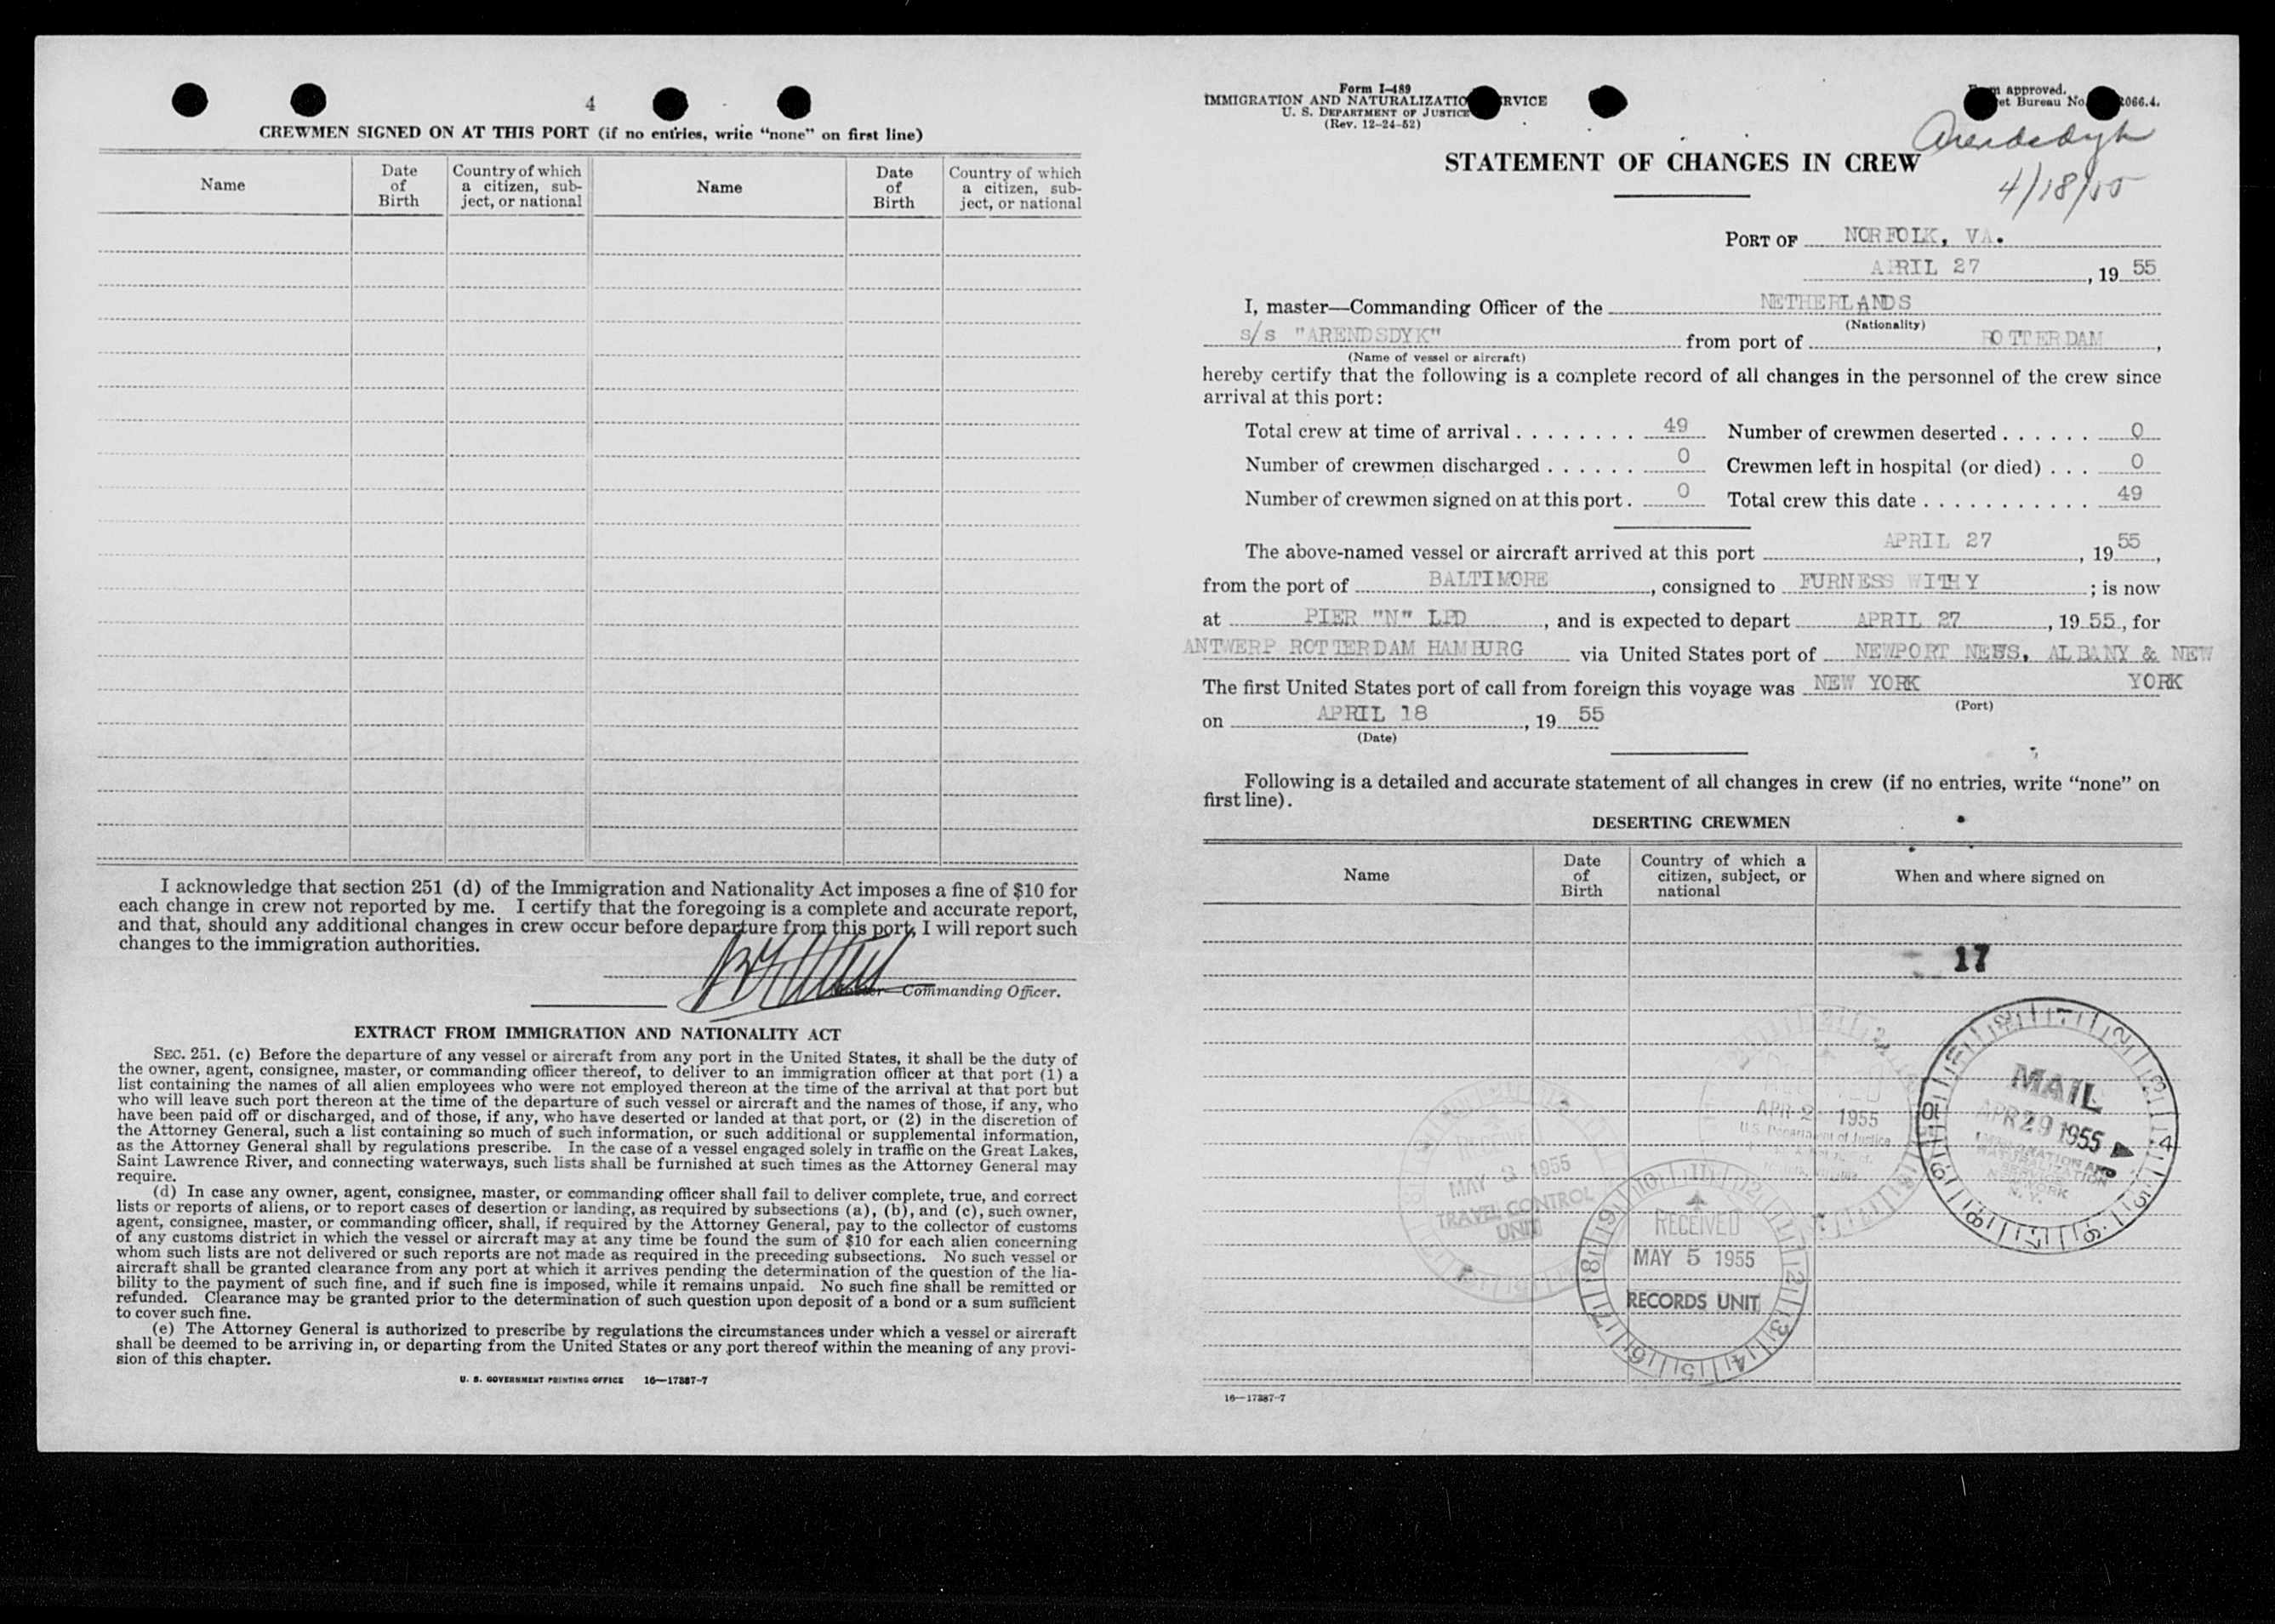 4
CREWMEN SIGNED ON AT THIS PORT (if no entries, write "none" on first line)
Name
Date of Birth
Country of which a citizen, sub-ject, or national
Name
Date of Birth
Country of which a citizen, sub-ject, or national
I acknowledge that section 251 (d) of the Immigration and Nationality Act imposes a fine of $10 for
each change in crew not reported by me. I certify that the foregoing is a complete and accurate report,
and that, should any additional changes in crew occur before departure from this port, I will report such
changes to the immigration authorities.
Commanding Officer.
EXTRACT FROM IMMIGRATION AND NATIONALITY ACT
SEC. 251. (c) Before the departure of any vessel or aircraft from any port in the United States, it shall be the duty of
the owner, agent, consignee, master, or commanding officer thereof, to deliver to an immigration officer at that port (1) a
list containing the names of all alien employees who were not employed thereon at the time of the arrival at that port but
who will leave such port thereon at the time of the departure of such vessel or aircraft and the names of those, if any, who
have been paid off or discharged, and of those, if any, who have deserted or landed at that port, or (2) in the discretion of
the Attorney General, such a list containing so much of such information, or such additional or supplemental information,
as the Attorney General shall by regulations prescribe. In the case of a vessel engaged solely in traffic on the Great Lakes,
Saint Lawrence River, and connecting waterways, such lists shall be furnished at such times as the Attorney General may
require.
(d) In case any owner, agent, consignee, master, or commanding officer shall fail to deliver complete, true, and correct
lists or reports of aliens, or to report cases of desertion or landing, as required by subsections (a), (b), and (c), such owner,
agent, consignee, master, or commanding officer, shall, if required by the Attorney General, pay to the collector of customs
of any customs district in which the vessel or aircraft may at any time be found the sum of $10 for each alien concerning
whom such lists are not delivered or such reports are not made as required in the preceding subsections. No such vessel or
aircraft shall be granted clearance from any port at which it arrives pending the determination of the question of the lia-
bility to the payment of such fine, and if such fine is imposed, while it remains unpaid. No such fine shall be remitted or
refunded. Clearance may be granted prior to the determination of such question upon deposit of a bond or a sum sufficient
to cover such fine.
(e) The Attorney General is authorized to prescribe by regulations the circumstances under which a vessel or aircraft
shall be deemed to be arriving in, or departing from the United States or any port thereof within the meaning of any provi-
sion of this chapter.
U. S. GOVERNMENT PRINTING OFFICE 16—17387-7
Form I-489
IMMIGRATION AND NATURALIZATIO RVICE
U. S. DEPARTMENT OF JUSTICE
(Rev. 12-24-52)
approved.
et Bureau No. 066.4.
Arendsdyk
4/18/55
STATEMENT OF CHANGES IN CREW
PORT OF NORFOLK, VA.
APRIL 27, 19 55
I, master—Commanding Officer of the NETHERLANDS
(Nationality)
s/s "ARENDSDYK" from port of ROTTERDAM,
(Name of vessel or aircraft)
hereby certify that the following is a complete record of all changes in the personnel of the crew since
arrival at this port:
Total crew at time of arrival 49 Number of crewmen deserted 0
Number of crewmen discharged 0 Crewmen left in hospital (or died) 0
Number of crewmen signed on at this port. 0 Total crew this date 49
The above-named vessel or aircraft arrived at this port APRIL 27, 19 55,
from the port of BALTIMORE, consigned to FURNESS WITHY; is now
at PIER "N" LPD, and is expected to depart APRIL 27, 19 55, for
ANTWERP ROTTERDAM HAMBURG via United States port of NEWPORT NEWS, ALBANY & NEW
The first United States port of call from foreign this voyage was NEW YORK YORK
(Port)
on APRIL 18, 19 55
(Date)
Following is a detailed and accurate statement of all changes in crew (if no entries, write "none" on
first line).
DESERTING CREWMEN
Name
Date of Birth
Country of which a citizen, subject, or national
When and where signed on
17
MAIL
APR 29 1955
IMMIGRATION AND
NATURALIZATION
SERVICE
NEW YORK
N. Y.
1955
U.S. Department of Justice
MAY 3 1955
TRAVEL CONTROL
UNIT
RECEIVED
MAY 5 1955
RECORDS UNIT
16—17387-7